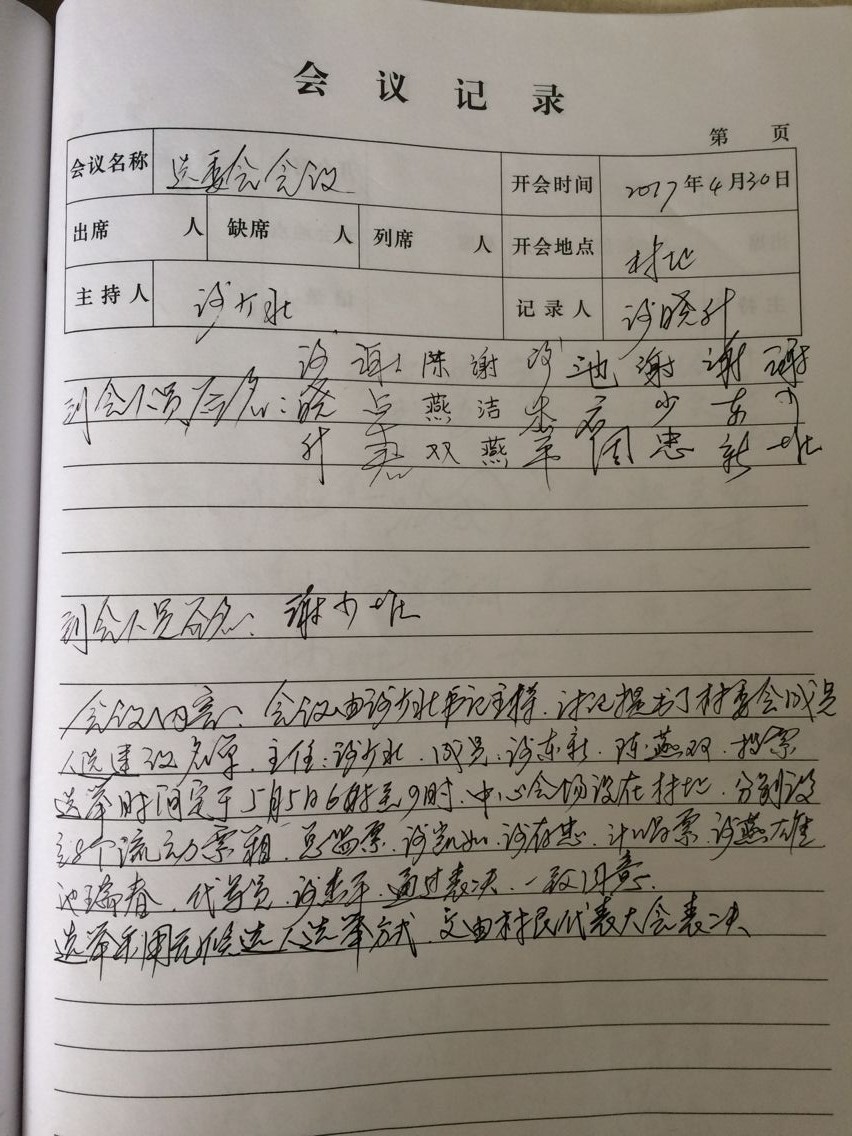 会议记录
第 页
会议名称 选委会会议 开会时间 2017年4月30日
出席 人 缺席 人 列席 人 开会地点 村址
主持人 谢少壮 记录人 谢晓升
谢 谢 陈 谢 谢 池 谢 谢 谢
到会人员签名：晓 燕 洁 少 东 少
升 双 燕 平 国 忠 新 壮
到会人员签名：谢少壮
会议内容：会议由谢少壮书记主持，讨论提出了村委会成员
人选建议名单，主任：谢少壮，成员：谢东新，陈燕双，投票
选举时间定于5月5日6时至9时，中心会场设在村址，分别设
个流动票箱，总监票，谢凯如，谢存忠，计唱票，谢燕雄
池瑞春，代写员，谢杰平，通过表决，一致同意。
选举采用无候选人选举方式，交由村民代表大会表决